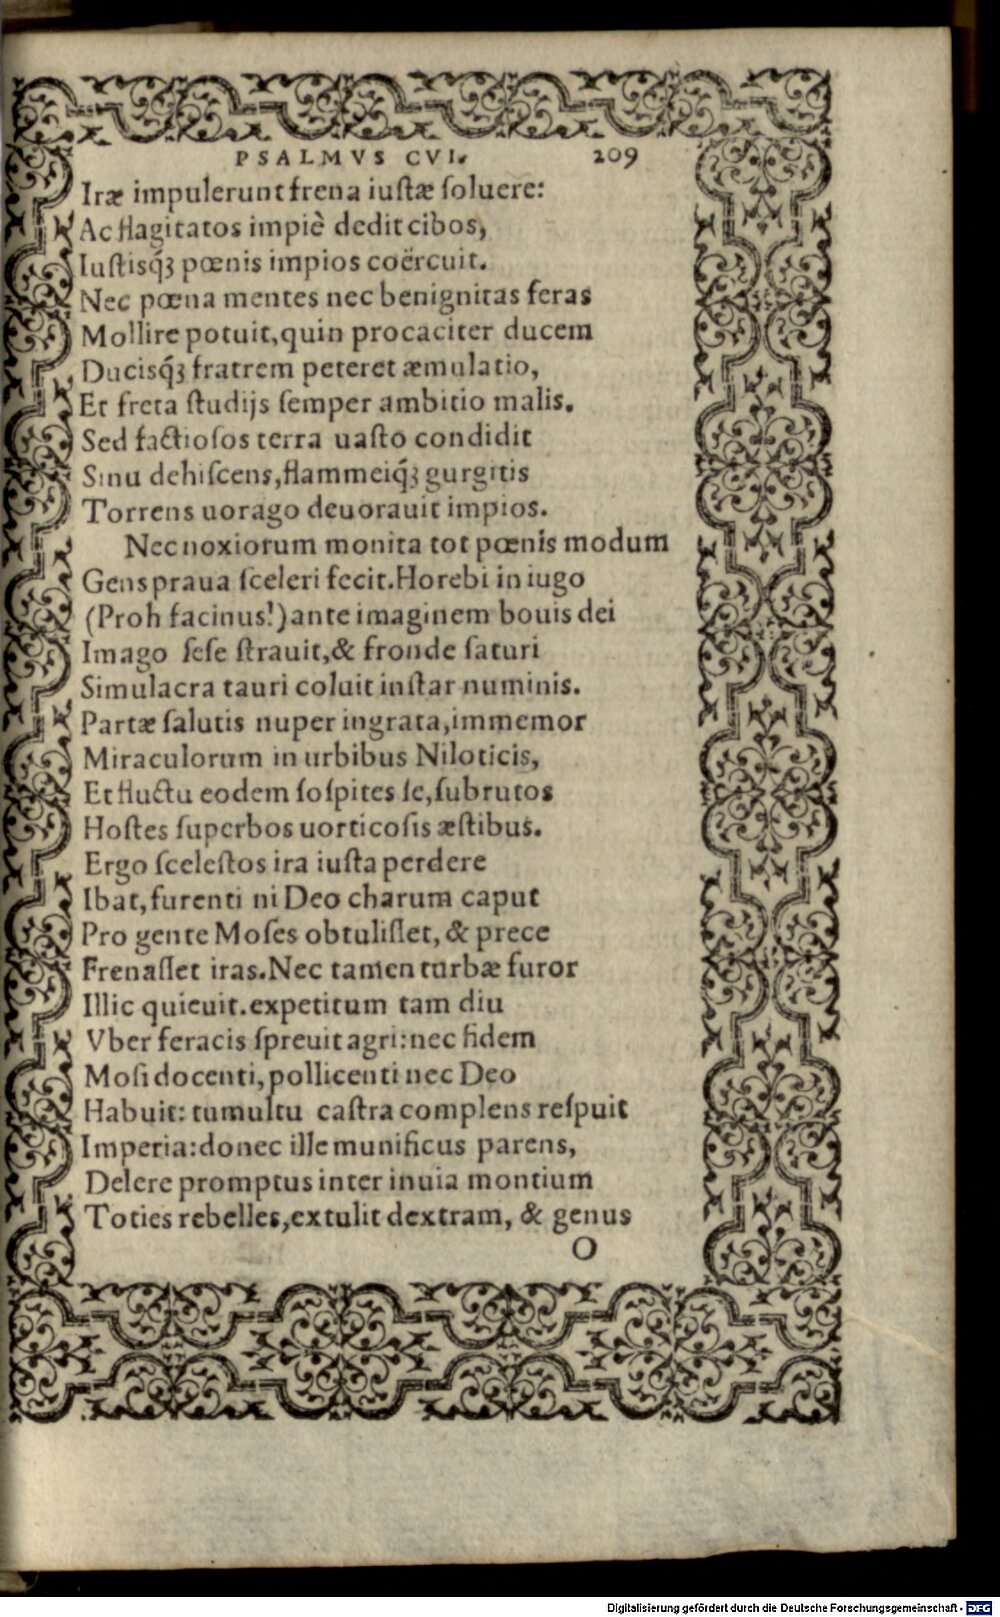 PSALMVS CVI. 209
Iræ impulerunt frena iustæ soluere:
Ac flagitatos impiè dedit cibos,
Iustisq́ꝫ pœnis impios coërcuit.
Nec pœna mentes nec benignitas feras
Mollire potuit, quin procaciter ducem
Ducisq́ꝫ fratrem peteret æmulatio,
Et freta studijs semper ambitio malis.
Sed factiosos terra uasto condidit
Sinu dehiscens, flammeiq́ꝫ gurgitis
Torrens uorago deuorauit impios.
Nec noxiorum monita tot pœnis modum
Gens praua sceleri fecit. Horebi in iugo
(Proh facinus!) ante imaginem bouis dei
Imago sese strauit, & fronde saturi
Simulacra tauri coluit instar numinis.
Partæ salutis nuper ingrata, immemor
Miraculorum in urbibus Niloticis,
Et fluctu eodem sospites se, subrutos
Hostes superbos uorticosis æstibus.
Ergo scelestos ira iusta perdere
Ibat, furenti ni Deo charum caput
Pro gente Moses obtulisset, & prece
Frenasset iras. Nec tamen turbæ furor
Illic quieuit. expetitum tam diu
Vber feracis spreuit agri: nec fidem
Mosi docenti, pollicenti nec Deo
Habuit: tumultu castra complens respuit
Imperia: donec ille munificus parens,
Delere promptus inter inuia montium
Toties rebelles, extulit dextram, & genus
O
Digitalisierung gefördert durch die Deutsche Forschungsgemeinschaft - DFG